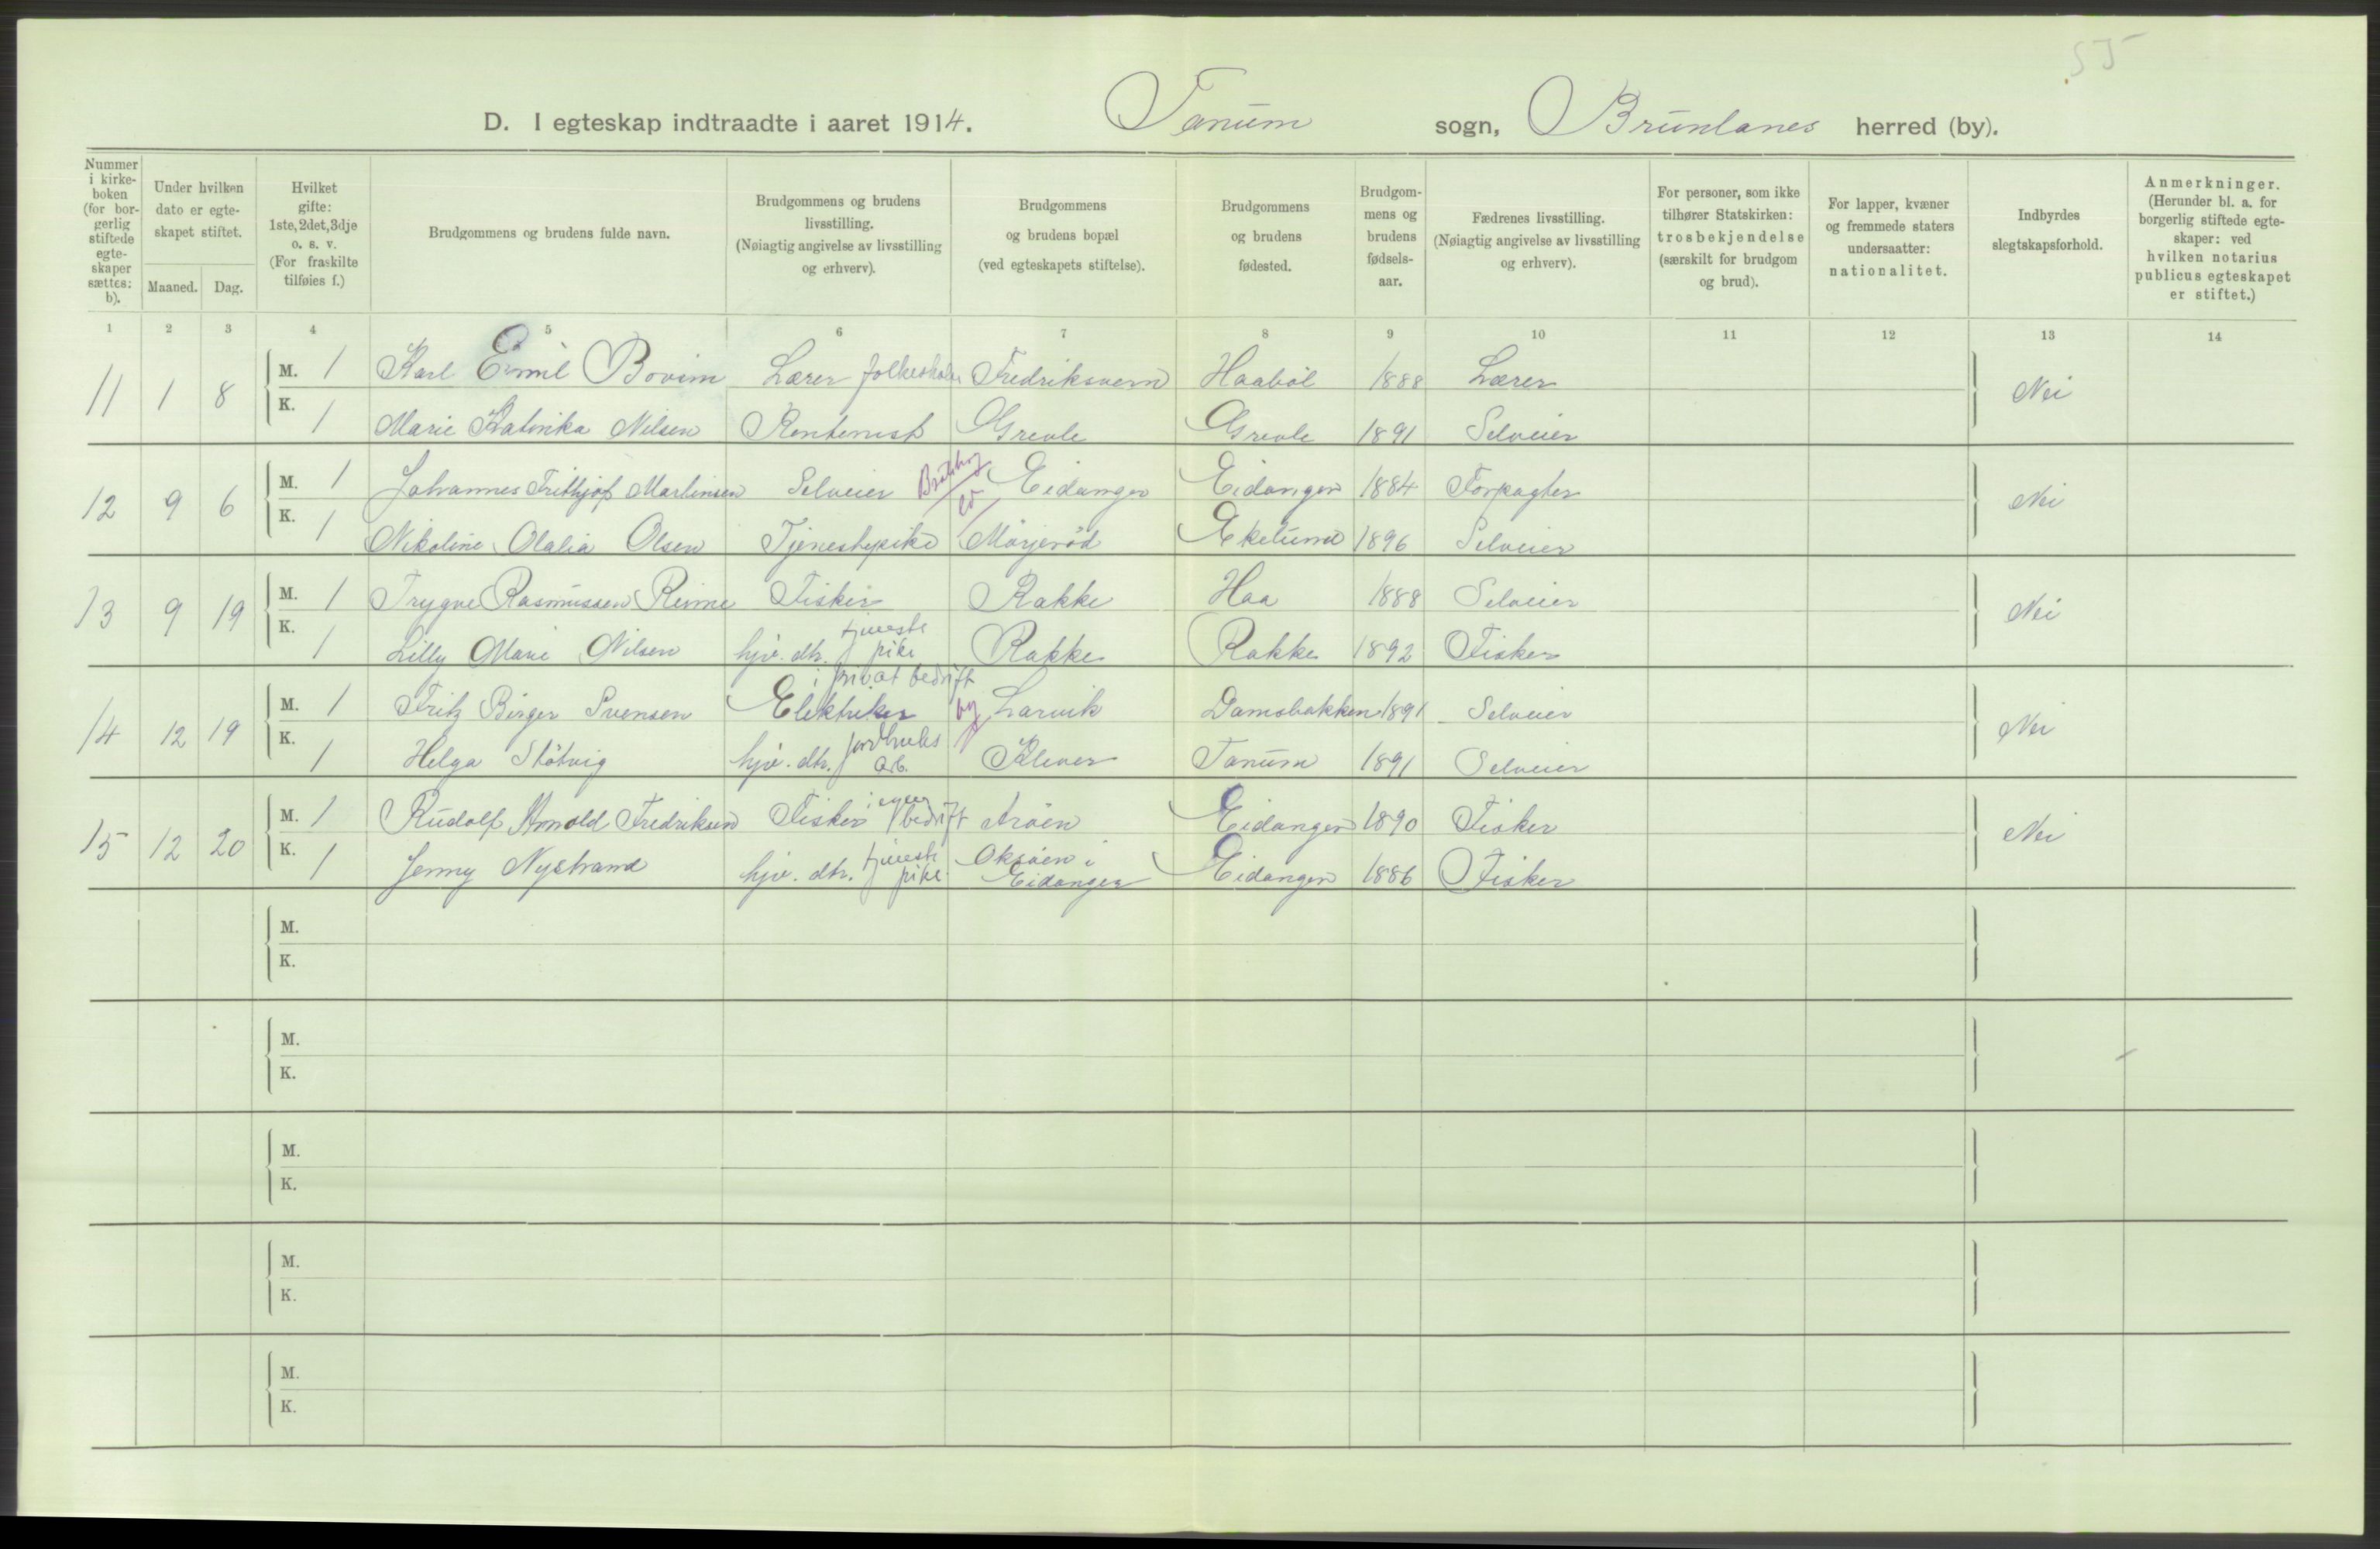 55
D. I egteskap indtraadte i aaret 1914. Tanum sogn, Brunlanes herred (by).
Nummer i kirkeboken (for borgerlig stiftede egteskaper sættes: b).
Under hvilken dato er egteskapet stiftet.
Maaned. Dag.
Hvilket gifte: 1ste, 2det, 3dje o. s. v. (For fraskilte tilføies f.)
Brudgommens og brudens fulde navn.
Brudgommens og brudens livsstilling. (Nøiagtig angivelse av livsstilling og erhverv).
Brudgommens og brudens bopæl (ved egteskapets stiftelse).
Brudgommens og brudens fødested.
Brudgommens og brudens fødselsaar.
Fædrenes livsstilling. (Nøiagtig angivelse av livsstilling og erhverv).
For personer, som ikke tilhører Statskirken: trosbekjendelse (særskilt for brudgom og brud).
For lapper, kvæner og fremmede staters undersaatter: nationalitet.
Indbyrdes slegtskapsforhold.
Anmerkninger. (Herunder bl. a. for borgerlig stiftede egteskaper: ved hvilken notarius publicus egteskapet er stiftet.)
1 2 3 4 5 6 7 8 9 10 11 12 13 14
11 1 8 M. 1 Karl Emil Bovim Lærer folkeskolen Fredriksvern Haaböl 1888 Lærer Nei
K. 1 Marie Katinka Nilsen Rentenist Grevle Grevle 1891 Selveier
12 9 6 M. 1 Johannes Frithjof Martinsen Selveier Bratsberg Eidanger Eidanger 1884 Forpagter Nei
K. 1 Nikoline Olalia Olsen Tjenestepike Mörjeröd Ekelund 1896 Selveier
13 9 19 M. 1 Trygve Rasmussen Reime Fisker Rakke Haa 1888 Selveier Nei
K. 1 Lilly Marie Nilsen hjv. dtr. tjeneste pike Rakke Rakke 1892 Fisker
14 12 19 M. 1 Fritz Birger Svensen Elektriker i privat bedrift by Larvik Damsbakken 1891 Selveier Nei
K. 1 Helga Stötvig hjv. dtr. jordbruks arb. Klever Tanum 1891 Selveier
15 12 20 M. 1 Rudolf Arnold Fredriksen Fisker i egen bedrift Aröen Eidanger 1890 Fisker Nei
K. 1 Jenny Nystrand hjv. dtr. tjeneste pike Oksöen i Eidanger Eidanger 1886 Fisker
M.
K.
M.
K.
M.
K.
M.
K.
M.
K.